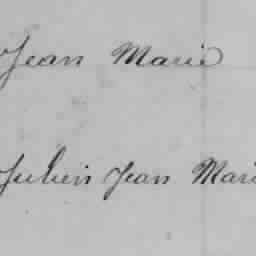 Jean Marie
Julien Jean Mari